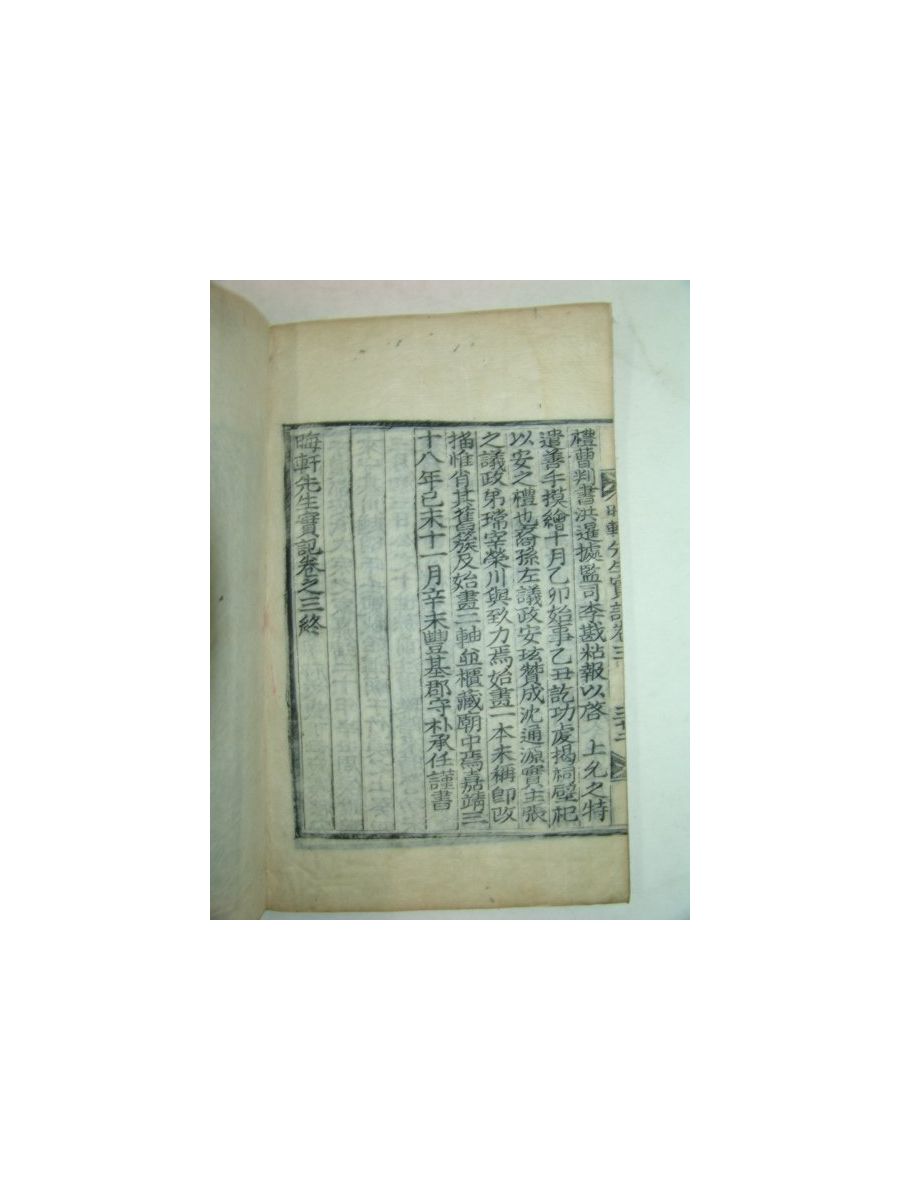 禮曹判書洪暹據監司李戡粘報以啓 上允之特
遣善手摸繪十月乙卯始事乙丑訖功虔揭祠壁祀
以安之禮也裔孫左議政安玹贊成沈通源實主張
之議政弟瑺宰榮川與致力焉始畵一本未稱卽改
描惟肖其舊簇及始畵二軸並櫃藏廟中焉嘉靖三
十八年己未十一月辛未豐基郡守朴承任謹書
晦軒先生實記卷之三終
晦軒先生實記卷三